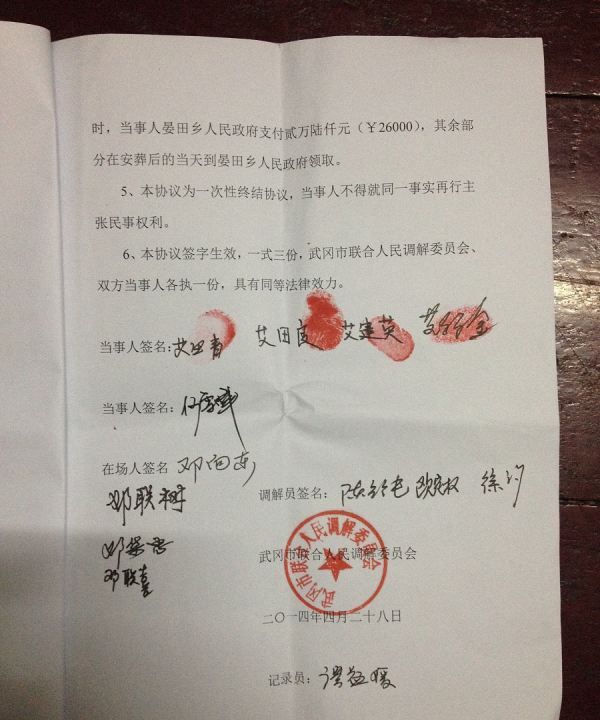 时，当事人晏田乡人民政府支付贰万陆仟元（￥26000），其余部
分在安葬后的当天到晏田乡人民政府领取。
5、本协议为一次性终结协议，当事人不得就同一事实再行主
张民事权利。
6、本协议签字生效，一式三份，武冈市联合人民调解委员会、
双方当事人各执一份，具有同等法律效力。
当事人签名：艾田青 艾田 艾建英
当事人签名：
在场人签名 邓向东
邓联树
邓联喜
调解员签名： 徐
武冈市联合人民调解委员会
武冈市联合人民调解委员会
二〇一四年四月二十八日
记录员：